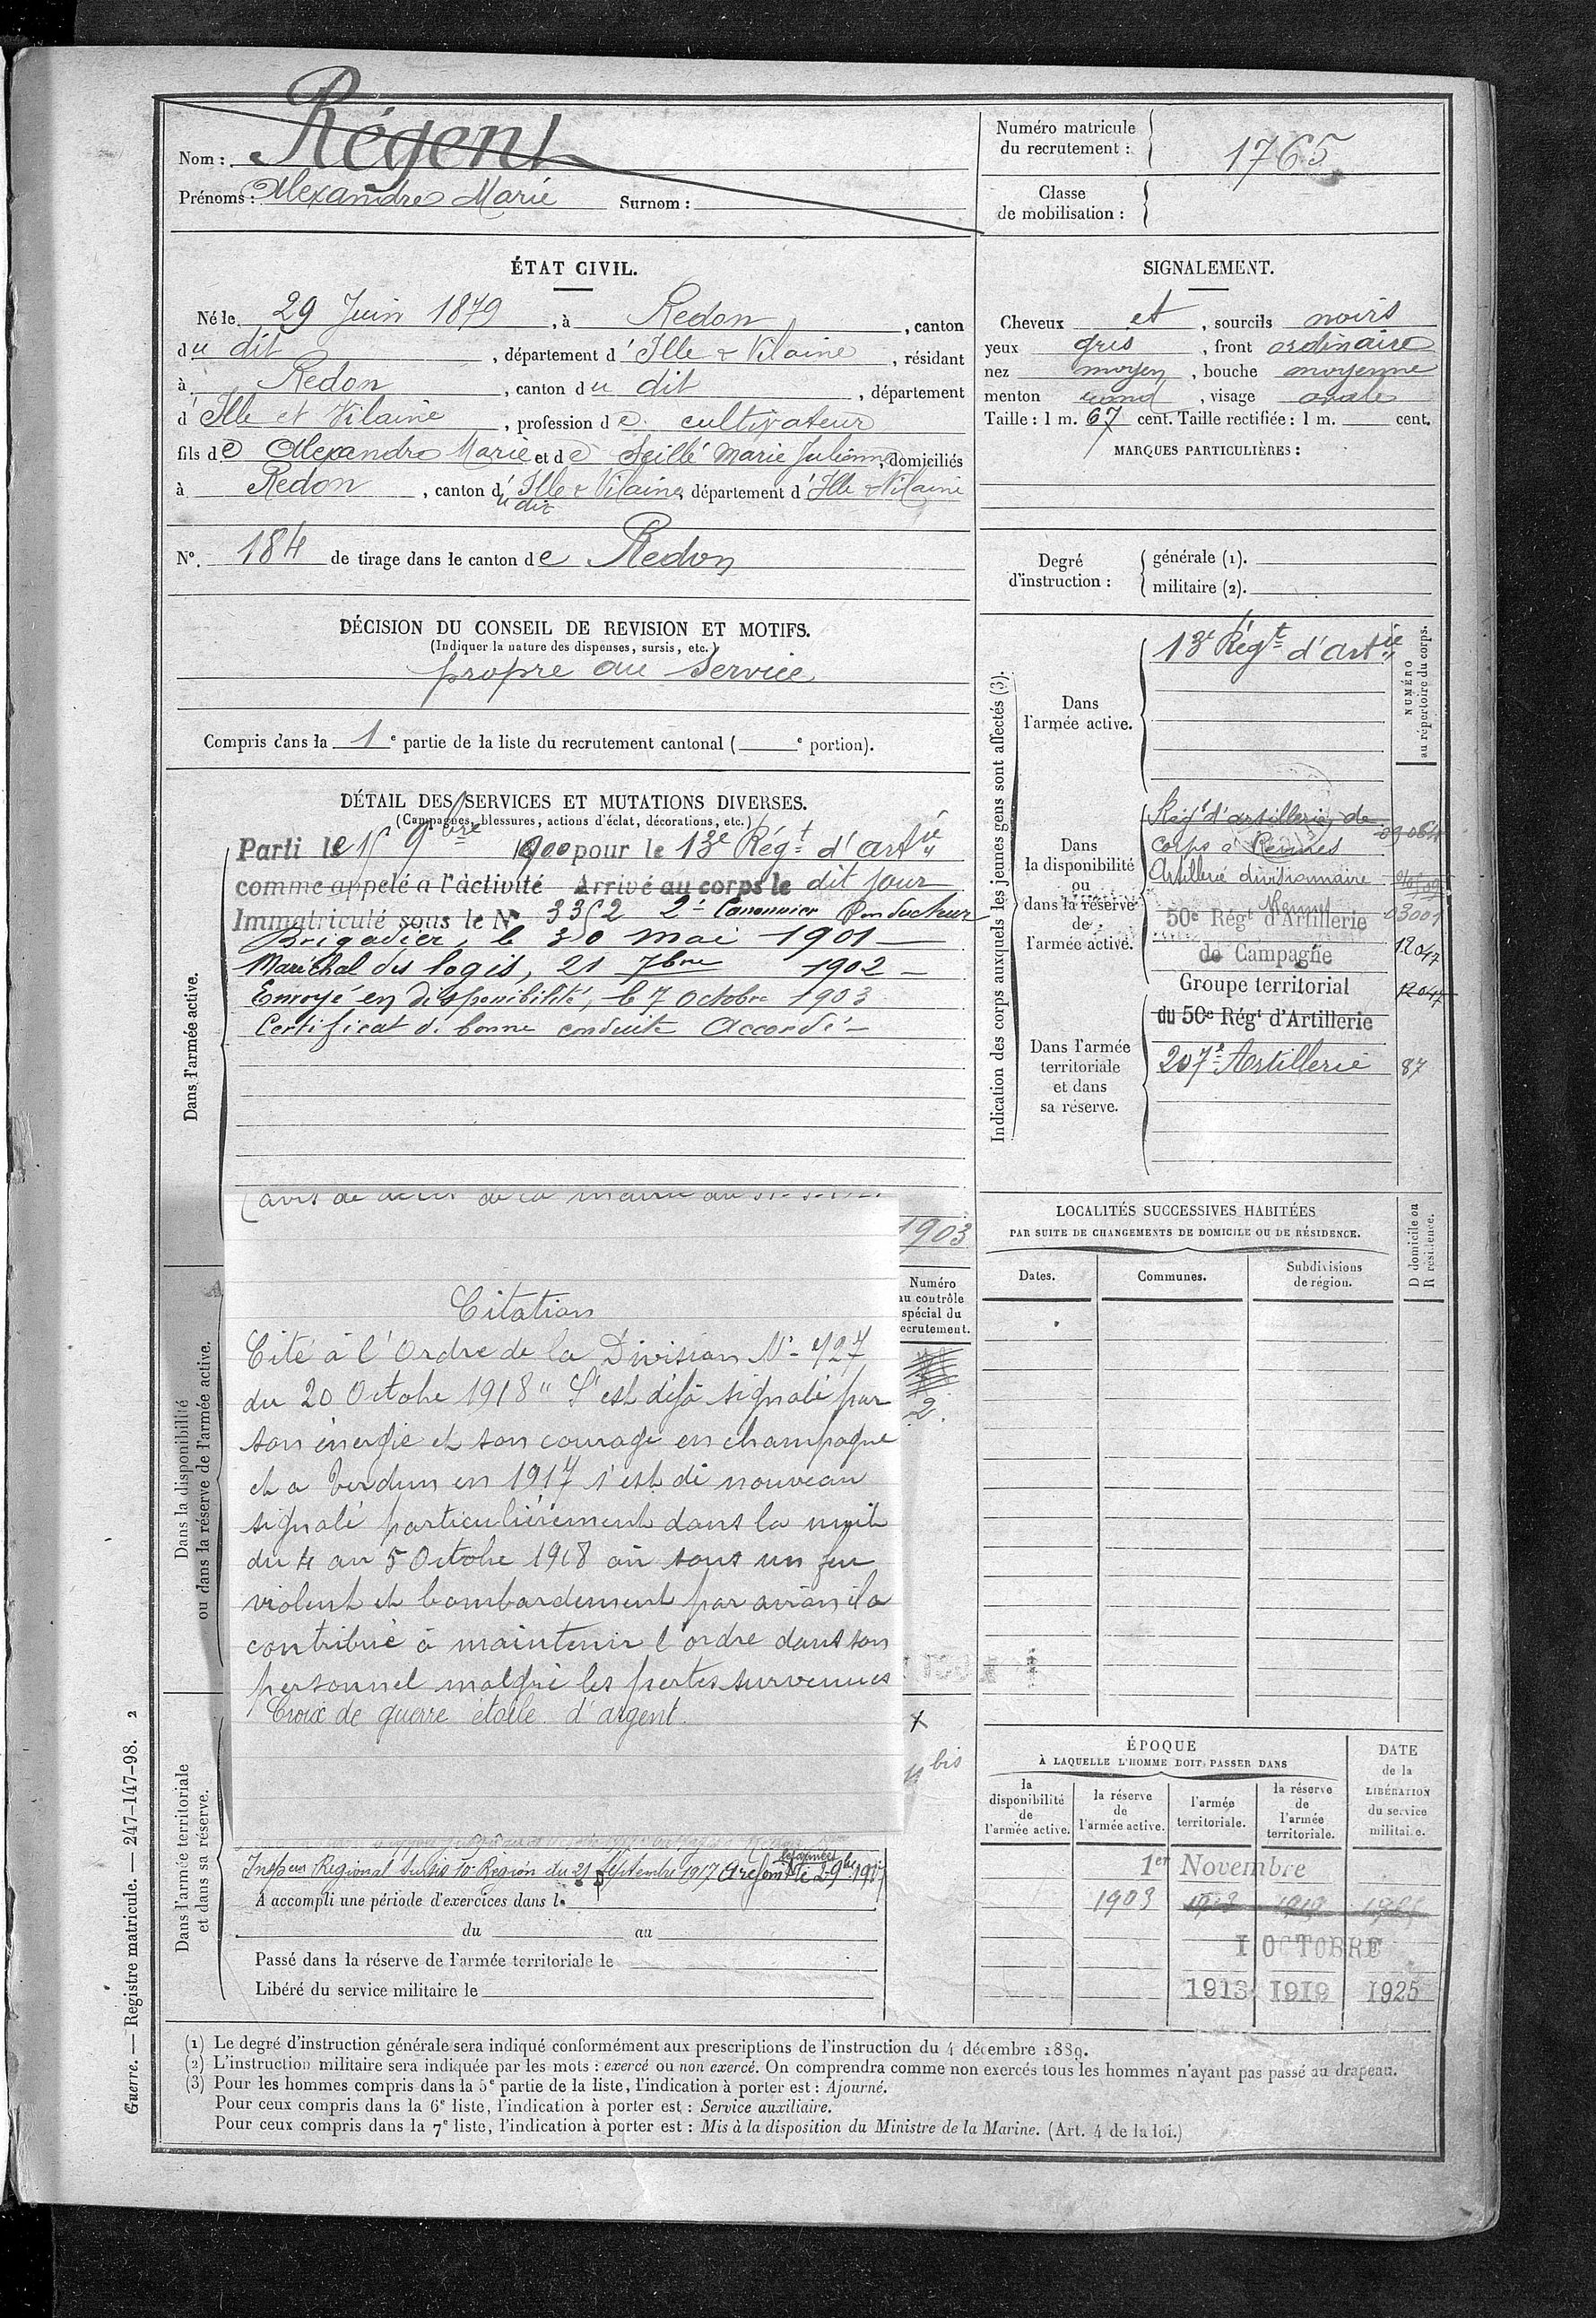 Nom : Régent
Prénoms : Alexandre Marie Surnom :
Numéro matricule
du recrutement :
1765
Classe
de mobilisation :
ÉTAT CIVIL.
Né le 29 Juin 1879, à Redon, canton
du dit, département d'Ille & Vilaine, résidant
à Redon, canton du dit, département
d'Ille et Vilaine, profession de cultivateur
fils de Alexandre Marie et de Seillé Marie Julienne, domiciliés
à Redon, canton d'Ille & Vilaine, département d'Ille & Vilaine
u dit
SIGNALEMENT.
Cheveux et, sourcils noirs
yeux gris, front ordinaire
nez moyen, bouche moyenne
menton rond, visage ovale
Taille : 1 m. 67 cent. Taille rectifiée : 1 m. cent.
MARQUES PARTICULIÈRES :
N°. 184 de tirage dans le canton de Redon
Degré
d'instruction :
générale (1).
militaire (2).
DÉCISION DU CONSEIL DE REVISION ET MOTIFS.
(Indiquer la nature des dispenses, sursis, etc.)
propre au service
Compris dans la 1e partie de la liste du recrutement cantonal ( e portion).
DÉTAIL DES SERVICES ET MUTATIONS DIVERSES.
(Campagnes, blessures, actions d'éclat, décorations, etc.)
Dans l'armée active.
Parti le 15 9bre 1900 pour le 13e Régt d'artie
comme appelé a l'activité Arrivé au corps le dit jour
Immatriculé sous le N° 3352 2e Canonnier Conducteur
Brigadier, le 30 mai 1901
Maréchal des logis, 21 7bre 1902
Envoyé en disponibilité, le 7 octobre 1903
Certificat de bonne conduite Accordé
1903
Indication des corps auxquels les jeunes gens sont affectés (3).
Dans
l'armée active.
13e Régt d'artie
NUMÉRO
au répertoire du corps.
Dans
la disponibilité
ou
dans la réserve
de
l'armée active.
Régt d'artillerie de
corps à Rennes
Artillerie divisionnaire
Rennes
03001
50e Régt d'Artillerie
de Campagne
12047
Groupe territorial
12047
du 50e Régt d'Artillerie
Dans l'armée
territoriale
et dans
sa réserve.
207e Artillerie 87
Dans la disponibilité
ou dans la réserve de l'armée active.
Numéro
au contrôle
spécial du
recrutement.
2
Citation
Cité à l'Ordre de la Division N° 727
du 20 Octobre 1918 " S'est déjà signalé par
son énergie et son courage en champagne
et a Verdun en 1917 s'est de nouveau
signalé particulièrement dans la nuit
du 4 au 5 Octobre 1918 où sous un feu
violent et bombardement par avion il a
contribué à maintenir l'ordre dans son
personnel malgré les pertes survenues
Croix de guerre étoile d'argent.
bis
LOCALITÉS SUCCESSIVES HABITÉES
PAR SUITE DE CHANGEMENTS DE DOMICILE OU DE RÉSIDENCE.
D domicile ou
R résidence.
Dates. Communes. Subdivisions
de région.
ÉPOQUE
À LAQUELLE L'HOMME DOIT PASSER DANS
la
disponibilité
de
l'armée active.
la réserve
de
l'armée active.
l'armée
territoriale.
la réserve
de
l'armée
territoriale.
DATE
de la
LIBÉRATION
du service
militaire.
1er Novembre
1903 1913 1919
1 OCTOBRE
1913 1919 1925
Dans l'armée territoriale
et dans sa réserve.
Région du 21 Septembre 1917
A accompli une période d'exercices dans l
du au
Passé dans la réserve de l'armée territoriale le
Libéré du service militaire le
(1) Le degré d'instruction générale sera indiqué conformément aux prescriptions de l'instruction du 4 décembre 1889.
(2) L'instruction militaire sera indiquée par les mots : exercé ou non exercé. On comprendra comme non exercés tous les hommes n'ayant pas passé au drapeau.
(3) Pour les hommes compris dans la 5e partie de la liste, l'indication à porter est : Ajourné.
Pour ceux compris dans la 6e liste, l'indication à porter est : Service auxiliaire.
Pour ceux compris dans la 7e liste, l'indication à porter est : Mis à la disposition du Ministre de la Marine. (Art. 4 de la loi.)
Guerre. — Registre matricule. — 247-147-98. 2